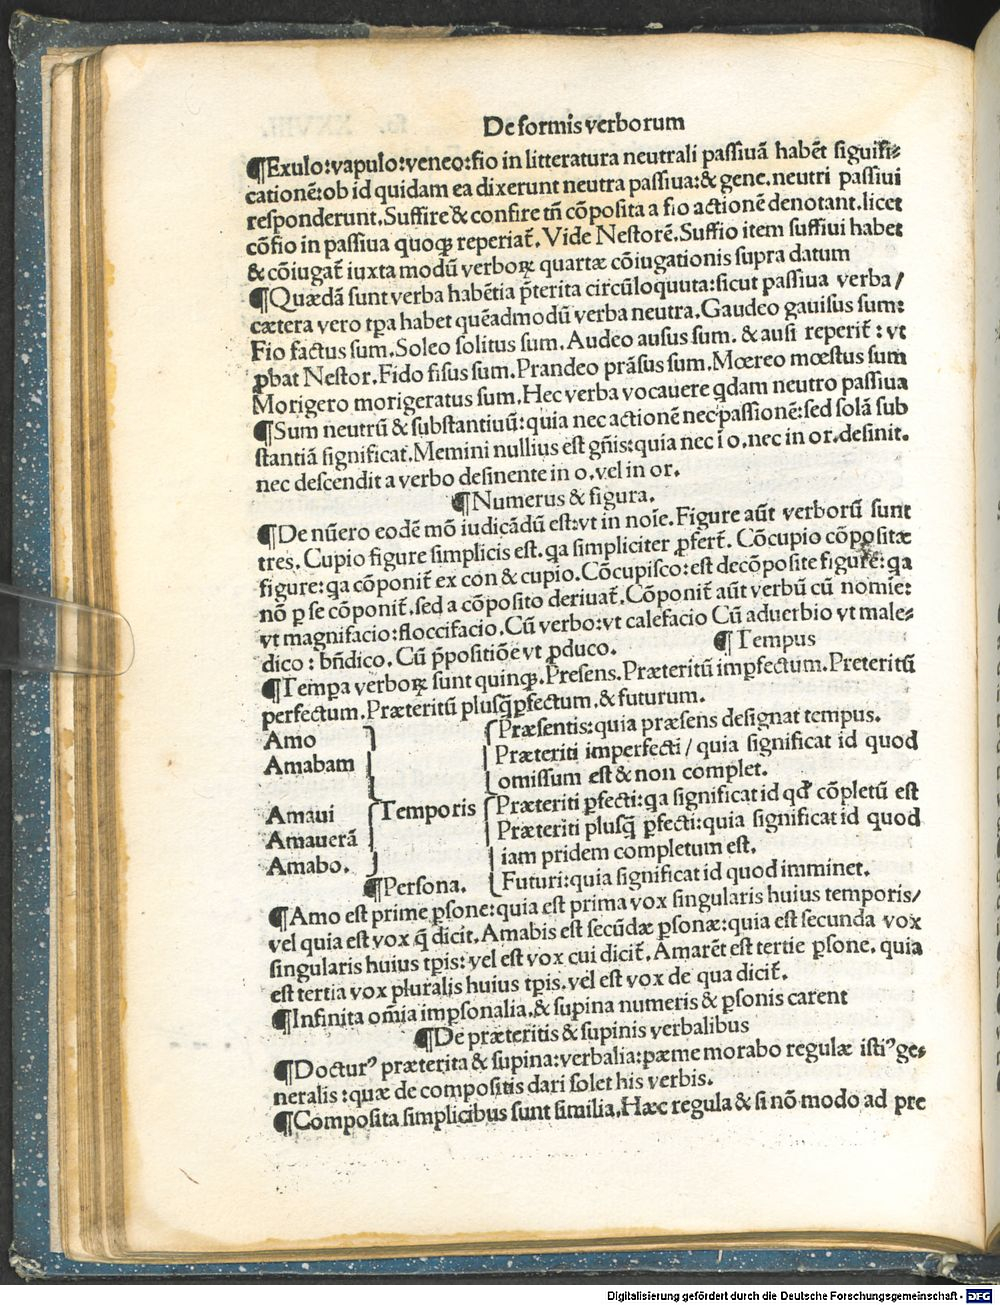 De formis verborum
¶Exulo:vapulo:veneo:fio in litteratura neutrali passiuã habẽt siguifi⸗
cationẽ:ob id quidam ea dixerunt neutra passiua:& gene.neutri passiui
responderunt.Suffire & confire tñ cõposita a fio actionẽ denotant.licet
cõfio in passiua quoqꝫ reperiat̃.Vide Nestorẽ.Suffio item suffiui habet
& cõiugat̃ iuxta modũ verboꝝ quartæ cõiugationis supra datum
¶Quædã sunt verba habẽtia p̃terita circũloquuta:sicut passiua verba/
cætera vero tꝑa habet quẽadmodũ verba neutra.Gaudeo gauisus sum:
Fio factus sum.Soleo solitus sum.Audeo ausus sum. & ausi reperit̃ : vt
ꝓbat Nestor.Fido fisus sum.Prandeo prãsus sum.Mœreo mœstus sum
Morigero morigeratus sum.Hec verba vocauere qdam neutro passiua
¶Sum neutrũ & substantiuũ:quia nec actionẽ nec passionẽ:sed solã sub
stantiã significat.Memini nullius est gñis:quia nec ĩ o.nec in or.desinit.
nec descendit a verbo desinente in o.vel in or.
¶Numerus & figura.
¶De nũero eodẽ mõ iudicãdũ est:vt in noĩe.Figure aũt verborũ sunt
tres. Cupio figure simplicis est. qa simpliciter ꝓfert̃. Cõcupio cõpositæ
figure: qa cõponit̃ ex con & cupio.Cõcupisco:est decõposite figure: qa
nõ ꝑ se cõponit̃.sed a cõposito deriuat̃.Cõponit̃ aũt verbũ cũ nomĩe:
vt magnifacio:floccifacio.Cũ verbo:vt calefacio Cũ aduerbio vt male⸗
dico : bñdico. Cũ p̃positiõe vt ꝓduco. ¶Tempus
¶Tempa verboꝝ sunt quinqꝫ.Presens.Præteritũ imꝑfectum.Preteritũ
perfectum.Præteritũ plusq̃ꝑfectum.& futurum.
Amo Præsentis:quia præsens designat tempus.
Amabam Præteriti imperfecti/ quia significat id quod
omissum est & non complet.
Amaui Temporis Præteriti ꝑfecti:qa significat id qd̓ cõpletũ est
Amauerã Præteriti plusq̃ ꝑfecti:quia significat id quod
iam pridem completum est.
Amabo. Futuri:quia significat id quod imminet.
¶Persona.
¶Amo est prime ꝑsone:quia est prima vox singularis huius temporis/
vel quia est vox q̃ dicit.Amabis est secũdæ ꝑsonæ:quia est secunda vox
singularis huius tꝑis: vel est vox cui dicit̃.Amarẽt est tertie ꝑsone. quia
est tertia vox pluralis huius tꝑis.vel est vox de qua dicit̃.
¶Infinita om̃ia imꝑsonalia.& supina numeris & ꝑsonis carent
¶De præteritis & supinis verbalibus
¶Doctur⁹ præterita & supina:verbalia:pæme morabo regulæ isti⁹ ge⸗
neralis :quæ de compositis dari solet his verbis.
¶Composita simplicibus sunt similia.Hæc regula & si nõ modo ad pre
Digitalisierung gefördert durch die Deutsche Forschungsgemeinschaft - DFG